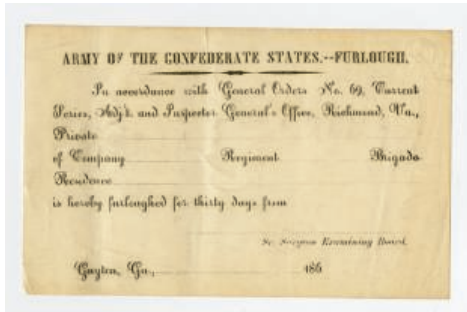 ARMY OF THE CONFEDERATE STATES.--FURLOUGH.
In accordance with General Orders No. 69, Current
Series, Adj't. and Inspector General's Office, Richmond, Va.,
Private
of Company Regiment Brigade
Residence
is hereby furloughed for thirty days from
Sr. Surgeon Examining Board.
Guyton, Ga., 186